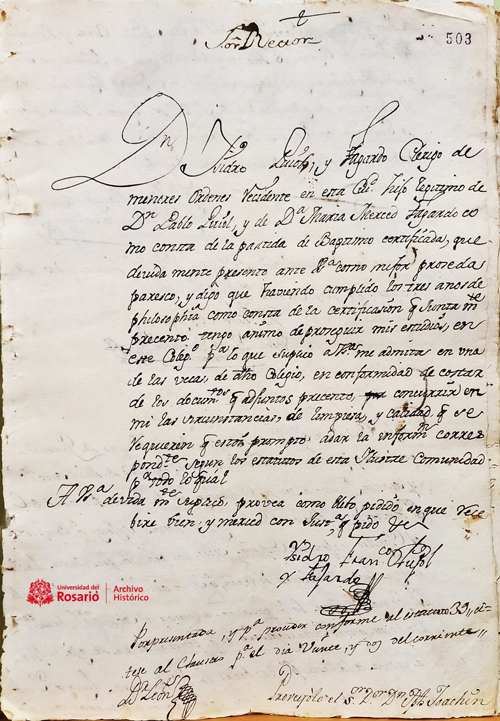 Sor Rector
503
Dn Isidro y Fagardo Clerigo de
menores Ordenes Recidente en esta hijo legitimo de
Dn Pablo y de Da Maria Merced Fagardo co
mo consta de la partida de Baptismo certificada, que
devida mente presento ante Va como mejor proseda
paresco, y digo que haviendo cumplido los tres anos de
philosophia como consta de la certificasion q junta mte
precento tengo animo de proseguir mis estudios, en
este Colego pa lo que supco a me admita en una
de las vecas de dho Colegio, en conformidad de costar
de los documtos q adjuntos precento, concurrir en
mi las sircunstancias, de limpiesa, y calidad q se
requieren q estoy prompto adar la informn corres
pondte segun los estatutos de esta Ilustre Comunidad
pa todo lo qual
A Va devida mte suplico, provea como llebo pedido en que rece
bire bien, y mersed con Justa q pido &e
Isidro Franco
y Fajardo
Universidad del
Rosario
Archivo
Histórico
Por presentada, y pa proveer conforme al estatuto 39
tese al Claustro pa el dia Veinte, y dos del corriente
Dr León
Proveyolo el sor Dr Dn Joachin